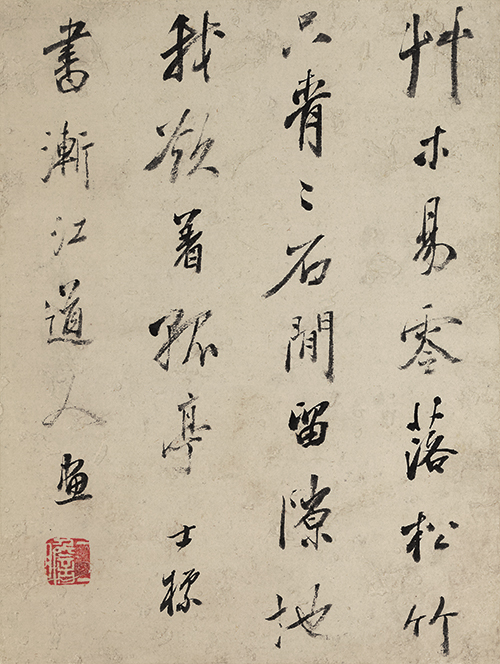 艸木易零落松竹
只青〻石閒留隙地
我欲着孤亭 士標
書漸江道人畫